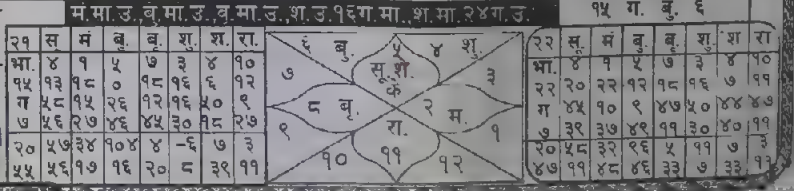 मं.मा.उ.,बु.मा.उ.,वृ.मा.उ.,श.उ.१६ग.मा.,श.मा.२४ग.उ.
१५ ग. बु. ६
२१ सू मं बु. बृ शु. श. रा.
भा. ४ १ ५ ७ ३ ४ १०
१५ १३ १८ ० १८ १६ ६ १२
ग ५८ १५ २६ १२ १६ ५० ९
७ ५६ २७ ४६ ४५ ३० १८ २७
२० ५७ ३४ १०४ ४ -६ ७ ३
५५ ५६ १७ १६ २० ८ ३९ ११
६ बु. ५ ४ शु.
७ सू श. ३
के
८ बृ. २ म.
९ रा. १
१० ११ १२
२२ सू. मं बु. बृ. शु. श रा
भा. ४ १ ५ ७ ३ ४ १०
२२ २० २२ १२ १८ १६ ७ ११
ग ४५ १० ९ ४७ ५० ४४ ४७
७ ३९ ३७ ४९ ११ ३० ४० ११
२० ५८ ३२ ९६ ५ ११ ७ ३
४७ ११ ४८ ४६ ३३ ७ ३३ ११